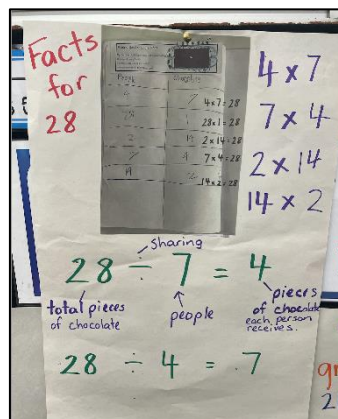 Facts
for
28
4 7 4 x 7 = 28
28 1 28 x 1 = 28
2 14 2 x 14 = 28
7 4 7 x 4 = 28
14 2 14 x 2 = 28
4 x 7
7 x 4
2 x 14
14 x 2
sharing
28 ÷ 7 = 4
total pieces
of chocolate
people
pieces
of chocolate
each person
receives.
28 ÷ 4 = 7
2